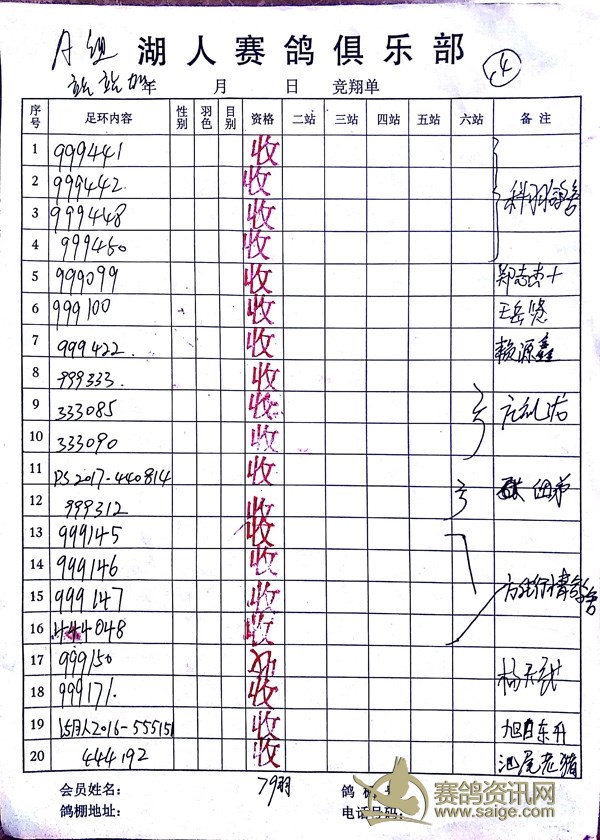 A组 湖人赛鸽俱乐部 4
年 月 日 竞翔单
序号 足环内容 性别 羽色 目别 资格 二站 三站 四站 五站 六站 备注
1 999441 收
2 999442 收
3 999448 收
4 999460 收
5 999099 收
6 999100 收
7 999422 收 赖源鑫
8 999333 收
9 333085 收
10 333090 收
11 PS2017-440814 收
12 999312 收
13 999145 收
14 999146 收
15 999147 收
16 444048 收
17 999150
18 999171 收
19 湖人2016-555151 收 旭日东升
20 444192 收 池尾老猪
会员姓名: 79羽 鸽棚
鸽棚地址: 电话号码:
赛鸽资讯网
www.saige.com